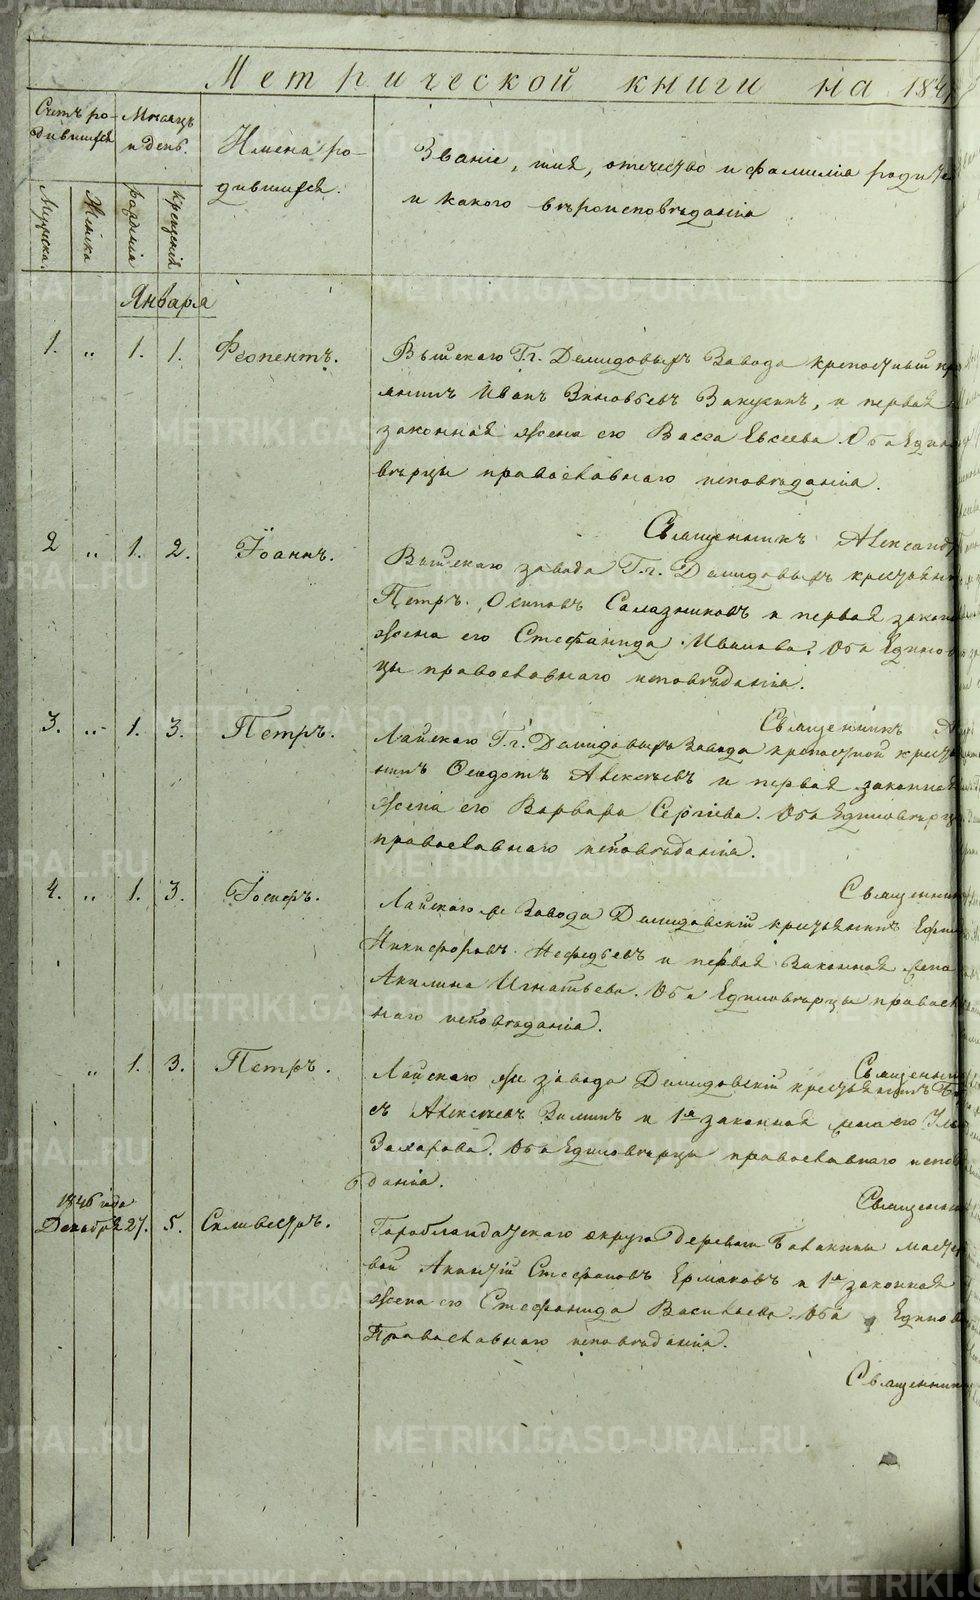 Метрической книги на 184
Счетъ ро-
дившихся
Мѣсяцъ
и день.
Имена ро-
дившихся.
Званіе, имя, отечество и фамилія родите
и какого вѣроисповѣданія
Мужска.
Женска
рожденія
крещенія
Января
1. „ 1. 1. Феопентъ.
Выйскаго Гг. Демидовыхъ Завода крепостный кре
янинъ Иванъ Зиновьевъ, и первая
законная жена его Васса Евсеева. Оба Един
вѣрцы православнаго исповѣданія.
Священникъ Александр
2 „ 1. 2. Іоаннъ.
Выйскаго завода Гг. Демидовыхъ крестьянин
Петръ Осиповъ Самазниковъ и первая закон
жена его Стефанида Иванова. Оба Единов
цы православнаго исповѣданія.
Священникъ А
3. „ 1. 3. Петръ.
Лайскаго Гг. Демидовыхъ Завода крепостной крест
нинъ Феодотъ Алексѣевъ и первая законная
жена его Варвара Сергіева. Оба Единовѣрц
православнаго исповѣданія.
Священник
4. „ 1. 3. Іосифъ.
Лайскаго же Завода Демидовскій крестьянинъ Ефи
Никифоровъ Нефедьевъ и первая Законная жена
Акилина Игнатьева. Оба Единовѣрцы правосл
наго исповѣданія.
Священни
„ 1. 3. Петръ.
Лайскаго же завода Демидовскій крестьянинъ
Алексѣевъ Зиминъ и 1я законная жена его
Захарова. Оба Единовѣрцы православнаго испов
данія.
Священни
1846 года
Декабря 27. 5. Силивестръ.
Гороблагодатскаго округа Деревни Балакины масте
вой Акинтій Стефановъ Ермаковъ и 1я законная
жена его Стефанида Васильева. Оба Единов
Православнаго исповѣданія.
Священник
METRIKI.GASO-URAL.RU